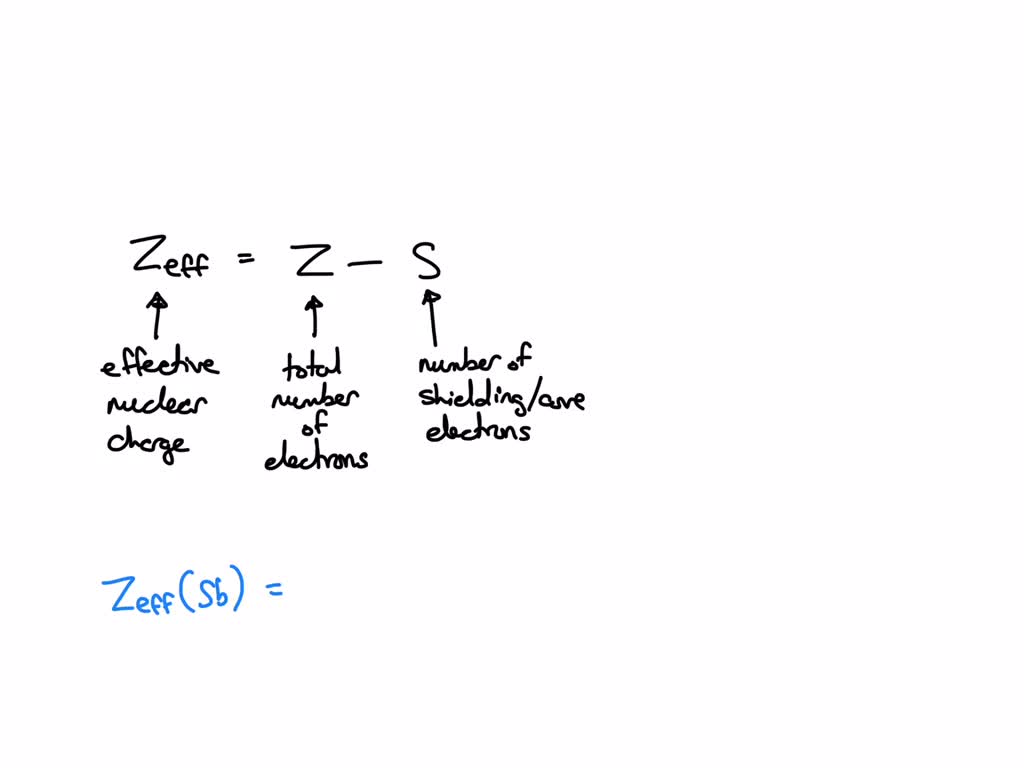 Zeff = Z - S
effective nuclear charge
total number of electrons
number of shielding/core electrons
Zeff(Sb) =